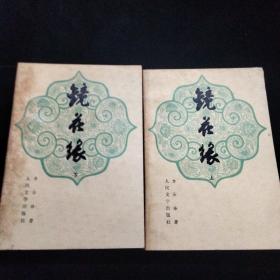 镜花缘
下
李汝珍著
人民文学出版社
镜花缘
上
李汝珍著
人民文学出版社